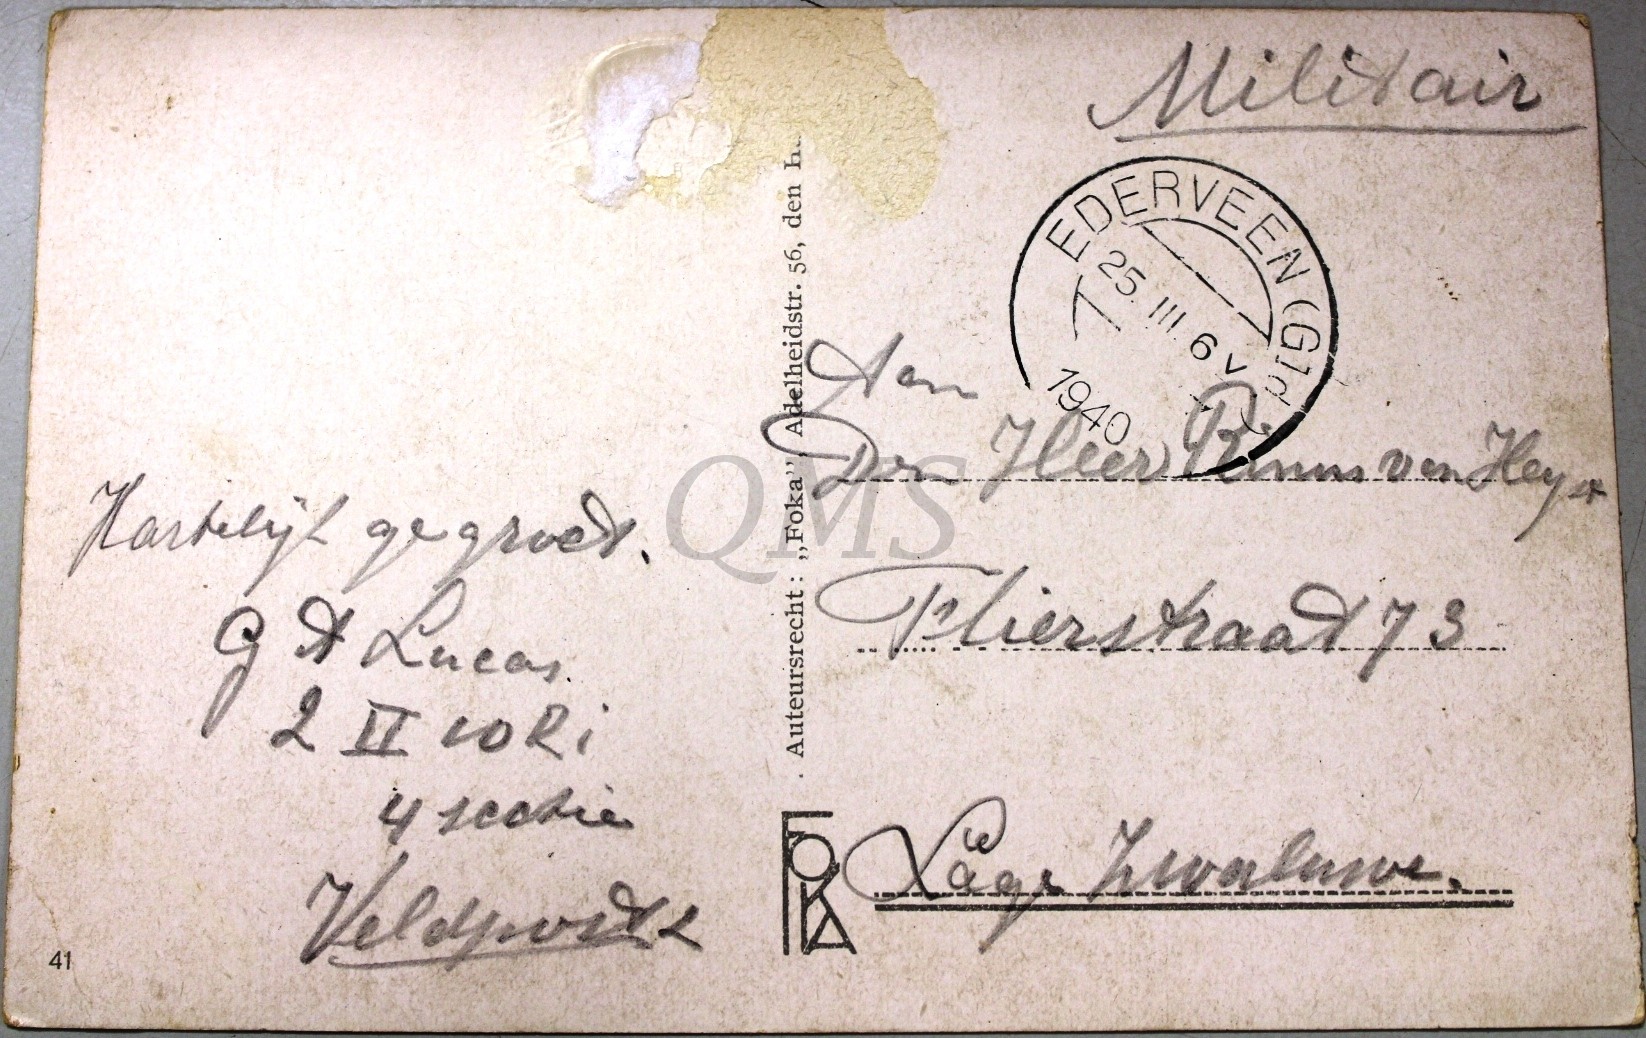 Militair
EDERVEEN (Gld
25. III. 6 V
1940
Aan
Den Heer Rinus van Heyst
Flierstraat 73
Lage Zwaluwe.
Hartelijk gegroet.
G A Lucas
2 II 10 Ri
4 sectie
Veldpost 2
. Auteursrecht: „Foka”, Adelheidstr. 56, den
FOKA
41
QMS